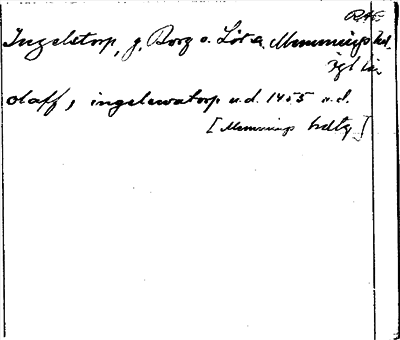 RAÖ
Ingelstorp, g. Borg o. Löt s. Memmings hd.
Ögl län
olaff j ingelwatorp u.d. 1455 u.d.
[Memmings hdtg]